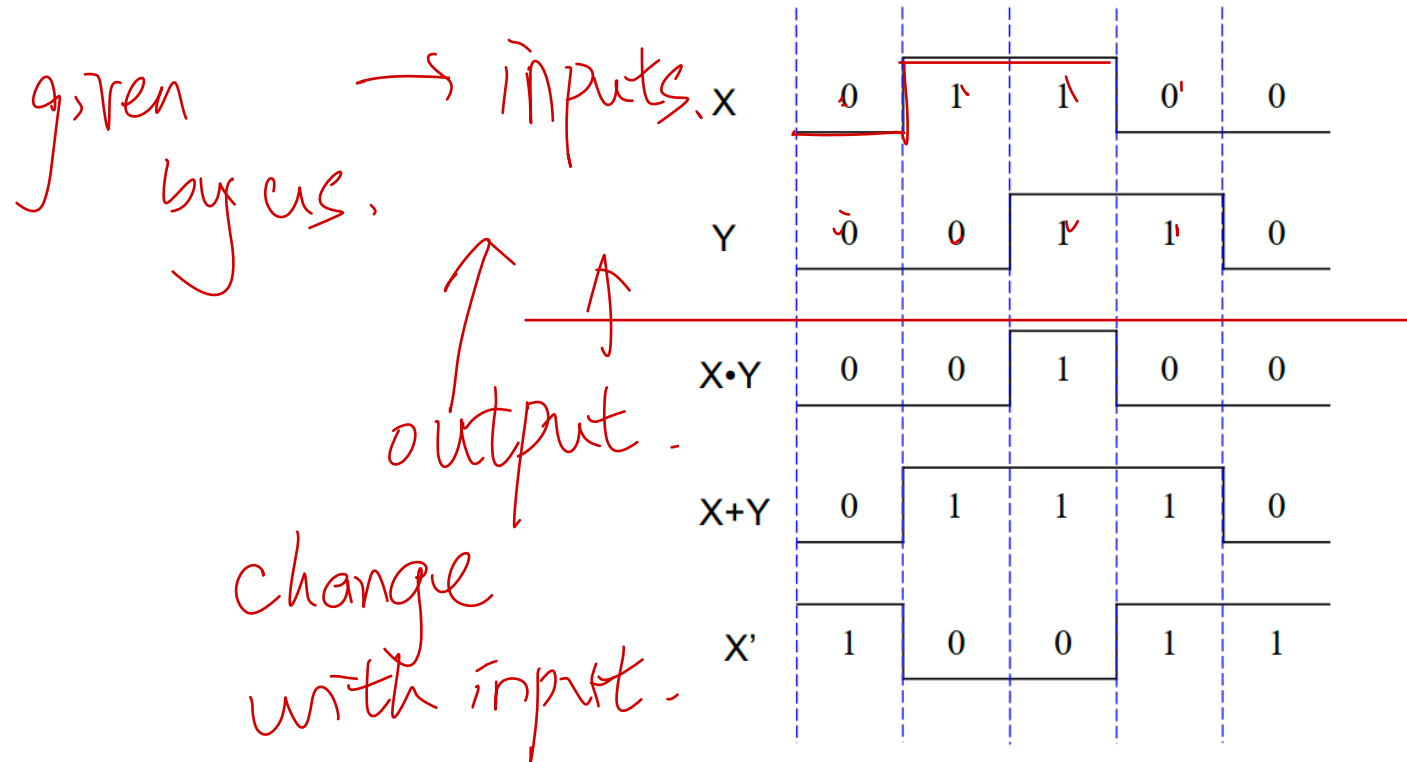 given → inputs.
by us.
output.
change
with input.
X 0 1 1 0 0
Y 0 0 1 1 0
X•Y 0 0 1 0 0
X+Y 0 1 1 1 0
X’ 1 0 0 1 1